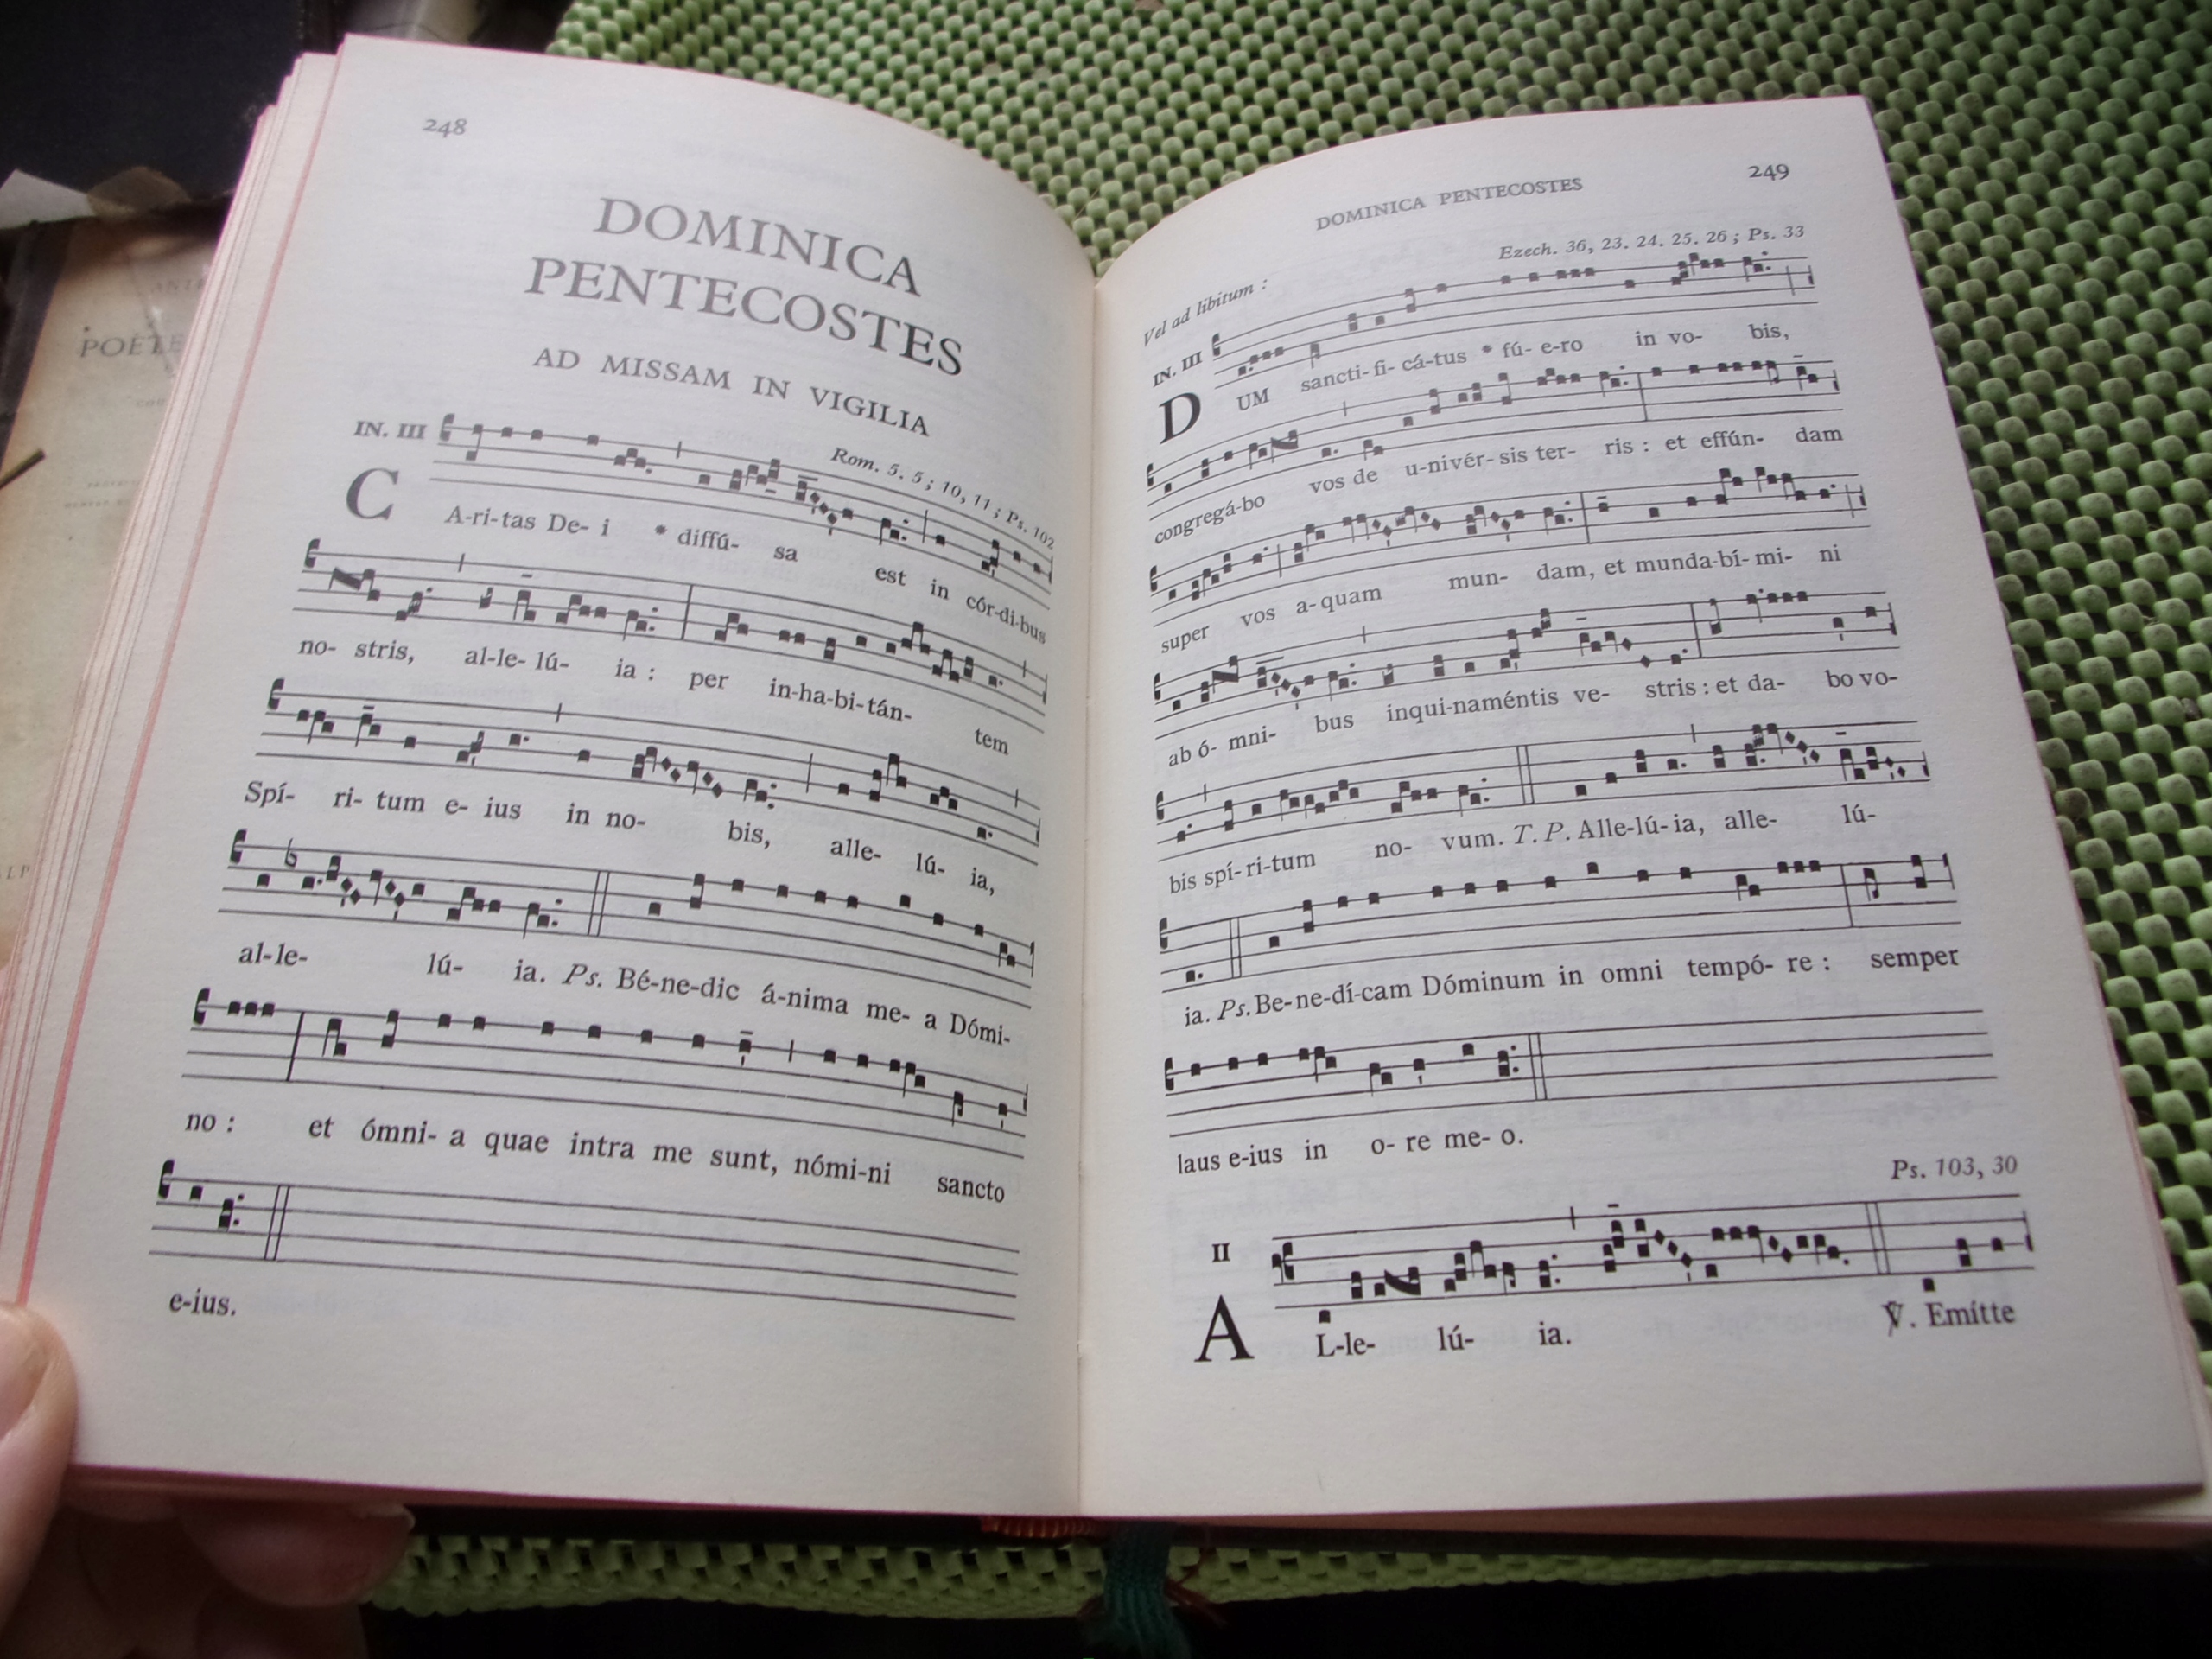 248
DOMINICA
PENTECOSTES
AD MISSAM IN VIGILIA
Rom. 5. 5; 10, 11; Ps. 102
IN. III
CA-ri-tas De- i * diffú- sa est in cór-di-bus
no- stris, al-le- lú- ia : per in-ha-bi-tán- tem
Spí- ri- tum e- ius in no- bis, alle- lú- ia,
al-le- lú- ia. Ps. Bé-ne-dic á-nima me- a Dómi-
no : et ómni- a quae intra me sunt, nómi-ni sancto
e-ius.
DOMINICA PENTECOSTES 249
Vel ad libitum :
Ezech. 36, 23. 24. 25. 26 ; Ps. 33
IN. III
DUM sancti- fi- cá-tus * fú- e-ro in vo- bis,
congregá-bo vos de u-nivér- sis ter- ris : et effún- dam
super vos a- quam mun- dam, et munda-bí- mi- ni
ab ó- mni- bus inqui-naméntis ve- stris : et da- bo vo-
bis spí- ri-tum no- vum. T. P. Alle-lú- ia, alle- lú-
ia. Ps. Be- ne-dí-cam Dóminum in omni tempó- re : semper
laus e-ius in o- re me- o.
Ps. 103, 30
II
AL-le- lú- ia. ℣. Emítte
POÈTE